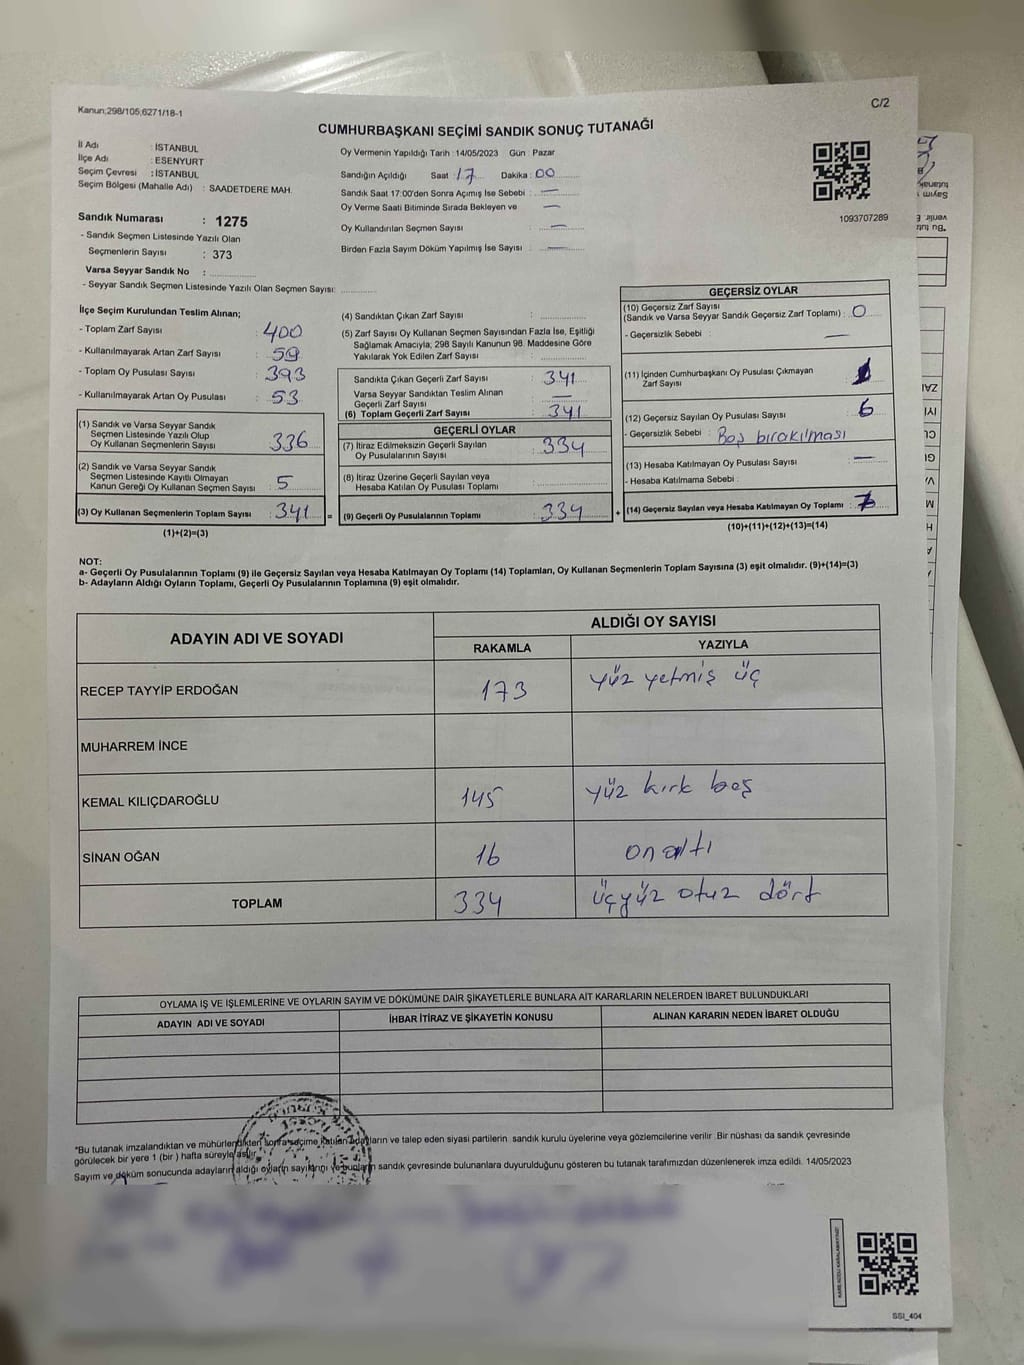 Kanun;298/105;6271/18-1
C/2
CUMHURBAŞKANI SEÇİMİ SANDIK SONUÇ TUTANAĞI
İl Adı : İSTANBUL
İlçe Adı : ESENYURT
Seçim Çevresi : İSTANBUL
Seçim Bölgesi (Mahalle Adı) : SAADETDERE MAH.
Sandık Numarası : 1275
- Sandık Seçmen Listesinde Yazılı Olan
Seçmenlerin Sayısı : 373
Varsa Seyyar Sandık No :
- Seyyar Sandık Seçmen Listesinde Yazılı Olan Seçmen Sayısı:
Oy Vermenin Yapıldığı Tarih : 14/05/2023 Gün : Pazar
Sandığın Açıldığı Saat : 17 Dakika : 00
Sandık Saat 17:00'den Sonra Açımış İse Sebebi : —
Oy Verme Saati Bitiminde Sırada Bekleyen ve —
Oy Kullandırılan Seçmen Sayısı : —
Birden Fazla Sayım Döküm Yapılmış İse Sayısı : —
1093707289
İlçe Seçim Kurulundan Teslim Alınan;
- Toplam Zarf Sayısı : 400
- Kullanılmayarak Artan Zarf Sayısı : 59
- Toplam Oy Pusulası Sayısı : 393
- Kullanılmayarak Artan Oy Pusulası : 53
(1) Sandık ve Varsa Seyyar Sandık
Seçmen Listesinde Yazılı Olup
Oy Kullanan Seçmenlerin Sayısı : 336
(2) Sandık ve Varsa Seyyar Sandık
Seçmen Listesinde Kayıtlı Olmayan
Kanun Gereği Oy Kullanan Seçmen Sayısı : 5
(3) Oy Kullanan Seçmenlerin Toplam Sayısı : 341
(1)+(2)=(3)
(4) Sandıktan Çıkan Zarf Sayısı :
(5) Zarf Sayısı Oy Kullanan Seçmen Sayısından Fazla İse, Eşitliği
Sağlamak Amacıyla; 298 Sayılı Kanunun 98. Maddesine Göre
Yakılarak Yok Edilen Zarf Sayısı :
Sandıkta Çıkan Geçerli Zarf Sayısı : 341
Varsa Seyyar Sandıktan Teslim Alınan
Geçerli Zarf Sayısı : —
(6) Toplam Geçerli Zarf Sayısı : 341
GEÇERLİ OYLAR
(7) İtiraz Edilmeksizin Geçerli Sayılan
Oy Pusulalarının Sayısı : 334
(8) İtiraz Üzerine Geçerli Sayılan veya
Hesaba Katılan Oy Pusulası Toplamı :
= (9) Geçerli Oy Pusulalarının Toplamı : 334 +
GEÇERSİZ OYLAR
(10) Geçersiz Zarf Sayısı
(Sandık ve Varsa Seyyar Sandık Geçersiz Zarf Toplamı) : 0
- Geçersizlik Sebebi : —
(11) İçinden Cumhurbaşkanı Oy Pusulası Çıkmayan
Zarf Sayısı : 1
(12) Geçersiz Sayılan Oy Pusulası Sayısı : 6
- Geçersizlik Sebebi : Boş bırakılması
(13) Hesaba Katılmayan Oy Pusulası Sayısı : —
- Hesaba Katılmama Sebebi :
(14) Geçersiz Sayılan veya Hesaba Katılmayan Oy Toplamı : 7
(10)+(11)+(12)+(13)=(14)
NOT:
a- Geçerli Oy Pusulalarının Toplamı (9) ile Geçersiz Sayılan veya Hesaba Katılmayan Oy Toplamı (14) Toplamları, Oy Kullanan Seçmenlerin Toplam Sayısına (3) eşit olmalıdır. (9)+(14)=(3)
b- Adayların Aldığı Oyların Toplamı, Geçerli Oy Pusulalarının Toplamına (9) eşit olmalıdır.
ADAYIN ADI VE SOYADI
ALDIĞI OY SAYISI
RAKAMLA YAZIYLA
RECEP TAYYİP ERDOĞAN 173 yüz yetmiş üç
MUHARREM İNCE
KEMAL KILIÇDAROĞLU 145 yüz kırk beş
SİNAN OĞAN 16 on altı
TOPLAM 334 üçyüz otuz dört
OYLAMA İŞ VE İŞLEMLERİNE VE OYLARIN SAYIM VE DÖKÜMÜNE DAİR ŞİKAYETLERLE BUNLARA AİT KARARLARIN NELERDEN İBARET BULUNDUKLARI
ADAYIN ADI VE SOYADI İHBAR İTİRAZ VE ŞİKAYETİN KONUSU ALINAN KARARIN NEDEN İBARET OLDUĞU
*Bu tutanak imzalandıktan ve mühürlendikten sonra seçime katılan adayların ve talep eden siyasi partilerin sandık kurulu üyelerine veya gözlemcilerine verilir. Bir nüshası da sandık çevresinde
görülecek bir yere 1 (bir ) hafta süreyle asılır.
Sayım ve döküm sonucunda adayların aldığı oyların sayılarını ve bunların sandık çevresinde bulunanlara duyurulduğunu gösteren bu tutanak tarafımızdan düzenlenerek imza edildi. 14/05/2023
SSI_404